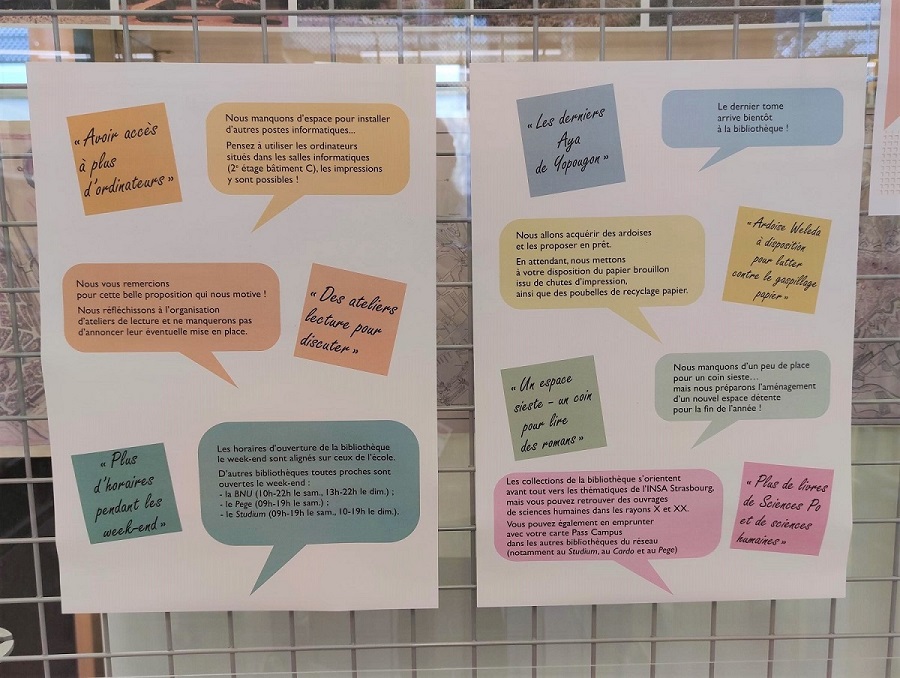 « Avoir accès
à plus
d'ordinateurs »
Nous manquons d'espace pour installer
d'autres postes informatiques...
Pensez à utiliser les ordinateurs
situés dans les salles informatiques
(2e étage bâtiment C), les impressions
y sont possibles !
Nous vous remercions
pour cette belle proposition qui nous motive !
Nous réfléchissons à l'organisation
d'ateliers de lecture et ne manquerons pas
d'annoncer leur éventuelle mise en place.
« Des ateliers
lecture pour
discuter »
« Plus
d'horaires
pendant les
week-end »
Les horaires d'ouverture de la bibliothèque
le week-end sont alignés sur ceux de l'école.
D'autres bibliothèques toutes proches sont
ouvertes le week-end :
- la BNU (10h-22h le sam., 13h-22h le dim.) ;
- le Pege (09h-19h le sam.) ;
- le Studium (09h-19h le sam., 10-19h le dim.).
« Les derniers
Aya
de Yopougon »
Le dernier tome
arrive bientôt
à la bibliothèque !
Nous allons acquérir des ardoises
et les proposer en prêt.
En attendant, nous mettons
à votre disposition du papier brouillon
issu de chutes d'impression,
ainsi que des poubelles de recyclage papier.
« Ardoise Weleda
à disposition
pour lutter
contre le gaspillage
papier »
« Un espace
sieste – un coin
pour lire
des romans »
Nous manquons d'un peu de place
pour un coin sieste...
mais nous préparons l'aménagement
d'un nouvel espace détente
pour la fin de l'année !
Les collections de la bibliothèque s'orientent
avant tout vers les thématiques de l'INSA Strasbourg,
mais vous pouvez retrouver des ouvrages
de sciences humaines dans les rayons X et XX.
Vous pouvez également en emprunter
avec votre carte Pass Campus
dans les autres bibliothèques du réseau
(notamment au Studium, au Cardo et au Pege)
« Plus de livres
de Sciences Po
et de sciences
humaines »